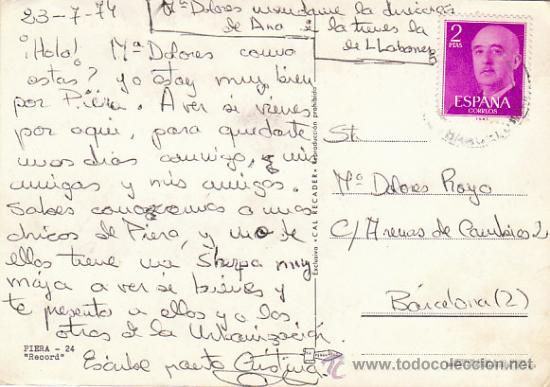 23-7-74
Mª Dolores mandame la
de Ana - la tienes la
de Llabanez
¡Hola! Mª Dolores como
estas? yo estoy muy bien
por Piera. A ver si vienes
por aqui, para quedarte
unos dias conmigo, mis
amigas y mis amigos.
Sabes conocemos a unos
chicos de Piera, y uno de
ellos tiene una Sherpa muy
maja a ver si bienes y
te presento a ellos y a los
otros de la Urbanización.
Escribe pronto Cristina
PIERA - 24
"Record"
Exclusiva "CAL RECADER" Reproducción prohibida
2
PTAS
ESPAÑA
CORREOS
St.
Mª Dolores Royo
C/ Arenas de Cambios 2
Barcelona (2)
todocoleccion.net